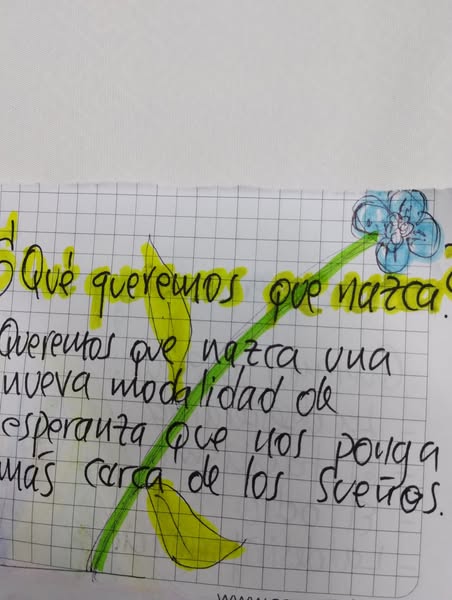 ¿Qué queremos que nazca?
Queremos que nazca una
nueva modalidad de
esperanza que nos ponga
más cerca de los sueños.